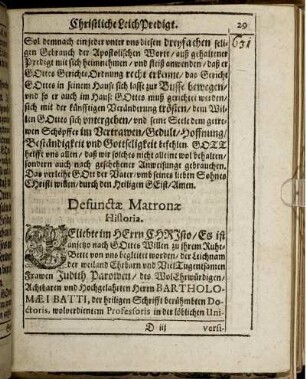 Christliche Leich Predigt.
29
631
Sol demnach ein jeder unter uns diesen dreyfachen seli-
gen Gebrauch der Apostolischen Worte / auß gehaltener
Predigt mit sich heimnehmen / und fleiß anwenden / daß er
GOttes Gerichts Ordnung recht erkenne / das Gericht
GOttes in seinem Hause sich lasse zur Busse bewegen /
und so er auch im Hause GOttes muß gerichtet werden /
sich mit der künfftigen Veränderung trösten / dem Wil-
len GOttes sich untergeben / und seine Seele dem getre-
wen Schöpffer im Vertrawen / Gedult / Hoffnung /
Beständigkeit und Gottseligkeit befehlen. GOTT
helffe uns allen / daß wir solches nicht alleine wol behalten /
sondern auch nach geschehener Anweisunge gebrauchen.
Das verleihe GOtt der Vater / umb seines lieben Sohnes
Christi willen / durch den Heiligen GEist / Amen.
Defunctæ Matronæ
Historia.
GEliebte im HErrn CHRisto / Es ist
anjetzo nach GOttes Willen zu ihrem Ruhe-
Bette von uns begleitet worden / der Leichnam
der weiland Ehrbarn und VielTugentsamen
Frawen Judith Parowen / des WolEhrwürdigen /
Achtbaren und Hochgelahrten Herrn BARTHOLO-
MÆI BATTI, der heiligen Schrifft berühmbten Do-
ctoris, wolverdientem Professoris in der löblichen Uni-
D iij
versi-